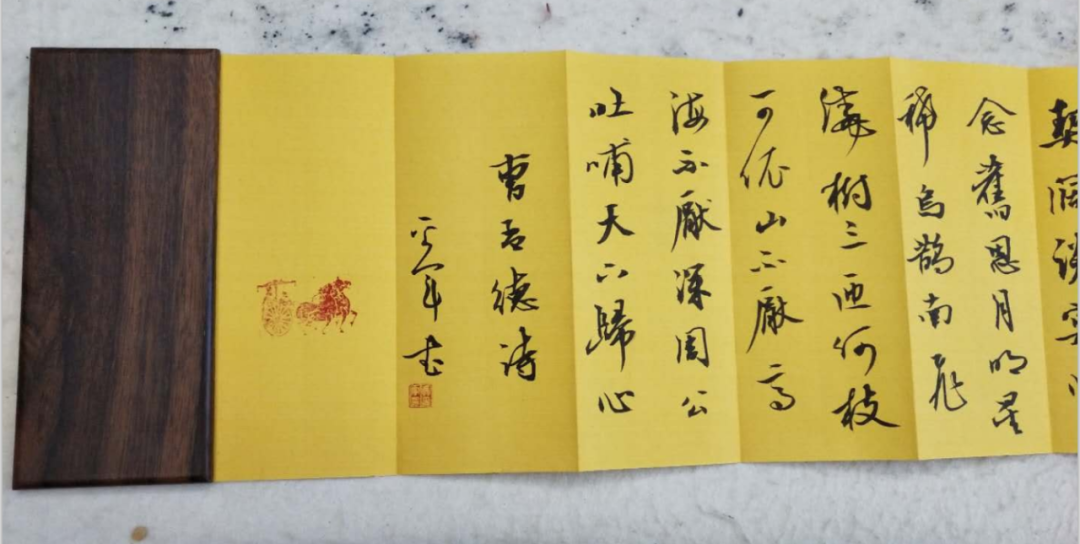 契闊談宴心
念舊恩月明星
稀烏鵲南飛
繞樹三匝何枝
可依山不厭高
海不厭深周公
吐哺天下歸心
曹孟德詩
年書